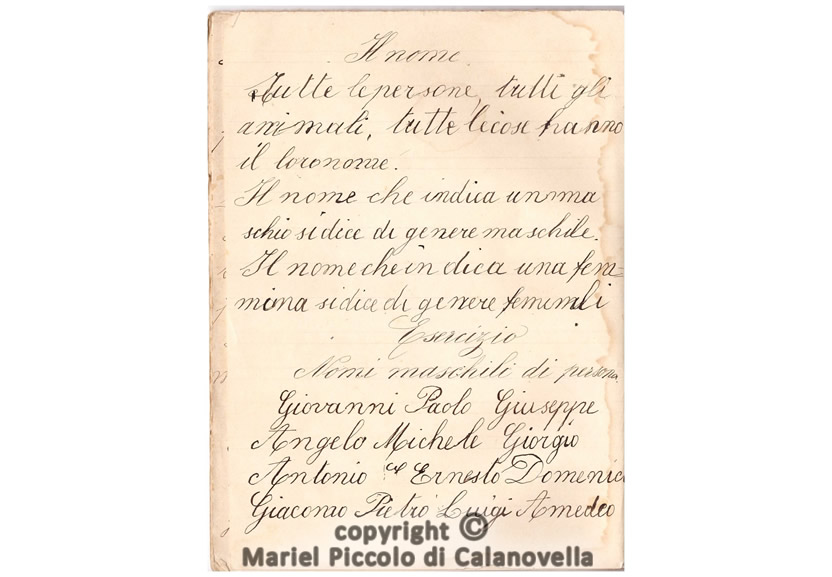 Il nome.
Tutte le persone, tutti gli
animali, tutte le cose hanno
il loro nome.
Il nome che indica un ma
schio si dice di genere maschile.
Il nome che indica una fem=
mina si dice di genere femminili
Esercizio
Nomi maschili di persona
Giovanni Paolo Giuseppe
Angelo Michele Giorgio
Antonio Ernesto Domenico
Giacomo Pietro Luigi Amedeo
copyright ©
Mariel Piccolo di Calanovella